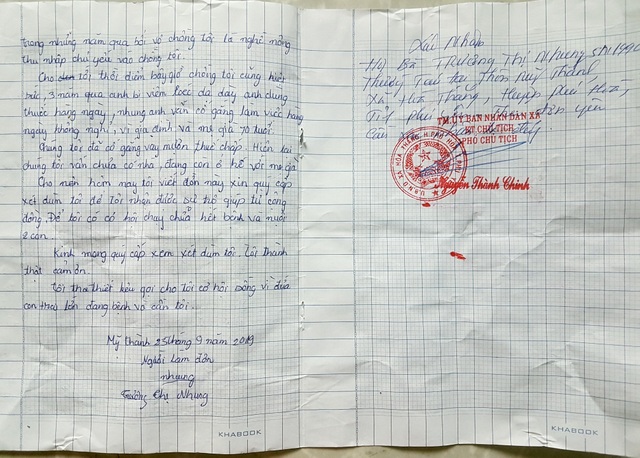 Trong những năm qua bởi vợ chồng tôi là nghề nông
thu nhập chủ yếu vào chồng tôi
Cho đến tôi thời điểm bây giờ chồng tôi cũng kiệt
sức, 3 năm qua anh bị viêm loét dạ dày anh dùng
thuốc hàng ngày, nhưng anh vẫn cố gắng làm việc hàng
ngày không nghỉ, vì gia đình và mẹ già 70 tuổi.
Chúng tôi đã cố gắng vay mượn thế chấp. Hiện tại
chúng tôi vẫn chưa có nhà, đang còn ở hề với mẹ già
Cho nên hôm nay tôi viết đơn này xin quý cấp
xét dùm tôi để Tôi nhận được sự trợ giúp từ cộng
đồng. Để tôi có cơ hội chạy chữa hết bệnh và nuôi
2 con.
Kính mong quý cấp xem xét dùm tôi. Tôi thành
thật cảm ơn.
Tôi tha thiết kêu gọi cho Tôi cơ hội sống vì đứa
con trai lớn đang bệnh và cần tôi.
Mỹ thành 25 tháng 9 năm 2019
Người làm đơn
nhung
Trương Thị Nhung
KHABOOK
Xác Nhận
Hộ Bà: Trương Thị Nhung
Thường Trú tại Thôn Mỹ Thành
Xã Hòa Thắng, Huyện Phú Hòa,
Tỉnh Phú
TM. ỦY BAN NHÂN DÂN XÃ
KT CHỦ TỊCH
PHÓ CHỦ TỊCH
Nguyễn Thành Chinh
KHABOOK